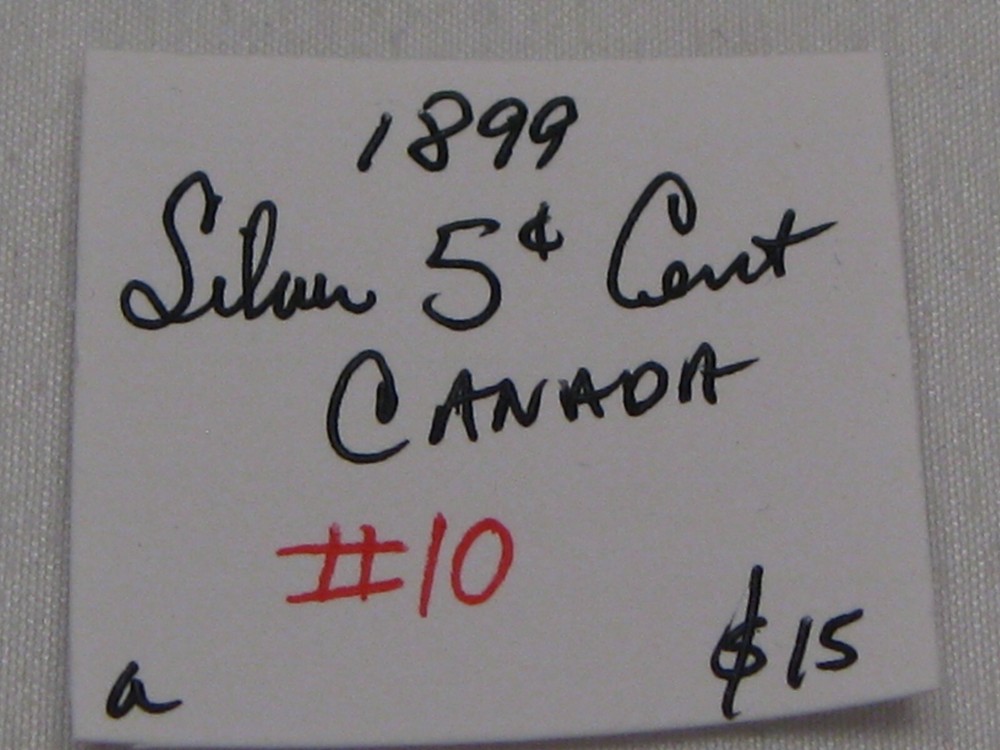 1899
Silver 5¢ Cent
CANADA
#10
a $15